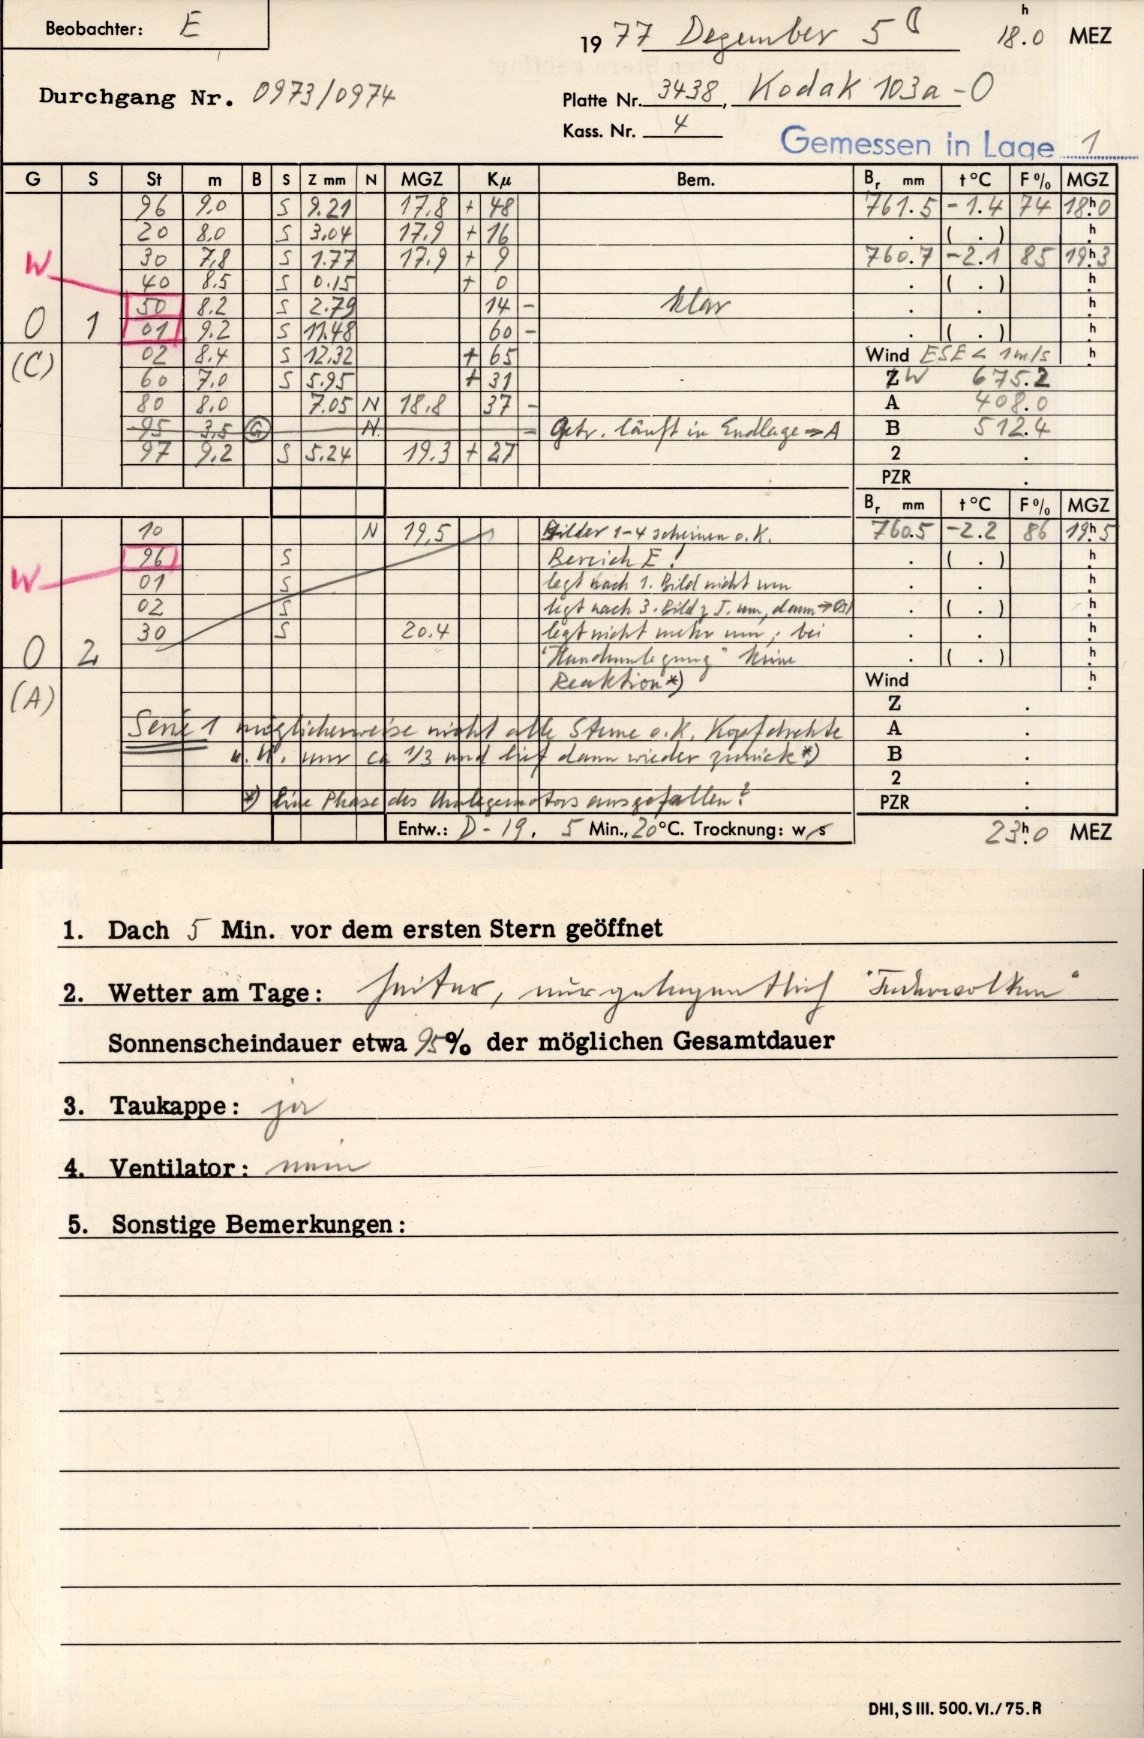 Beobachter: E
1977 Dezember 5 18h.0 MEZ
Durchgang Nr. 0973/0974
Platte Nr. 3438, Kodak 103a-O
Kass. Nr. 4
Gemessen in Lage 1
G S St m B S Z mm N MGZ Kμ Bem. Br mm t°C F% MGZ
96 9.0 S 9.21 17.8 + 48 761.5 -1.4 74 18h.0
20 8.0 S 3.04 17.9 + 16 . ( . ) h.
W 30 7.8 S 1.77 17.9 + 9 760.7 -2.1 85 19h.3
40 8.5 S 0.15 + 0 . ( . ) h.
50 8.2 S 2.79 14 - klar . . h.
0 1 01 9.2 S 11.48 60 - . ( . ) h.
(C) 02 8.4 S 12.32 + 65 Wind ESE < 1m/s h.
60 7.0 S 5.95 + 31 Z W 675.2
80 8.0 7.05 N 18.8 37 - A 408.0
95 3.5 G N. - Getr. läuft in Endlage ⇒ A B 512.4
97 9.2 S 5.24 19.3 + 27 2 .
PZR .
Br mm t°C F% MGZ
10 N 19,5 Bilder 1-4 scheinen o.K. 760.5 -2.2 86 19h.5
W 96 S Bereich E! . ( . ) h.
01 S legt nach 1. Bild nicht um . . h.
02 S legt nach 3. Bild z.T. um, dann → . ( . ) h.
30 S 20.4 legt nicht mehr um; bei . . h.
0 2 "Handumlegung" keine . ( . ) h.
(A) Reaktion *) Wind h.
Z .
Serie 1 möglicherweise nicht alle Sterne o.K. Kopf drehte A .
u.U. nur ca 1/3 und lief dann wieder zurück *) B .
2 .
*) Eine Phase des Umlegemotors ausgefallen? PZR .
Entw.: D-19, 5 Min., 20°C. Trocknung: w, s 23h.0 MEZ
1. Dach 5 Min. vor dem ersten Stern geöffnet
2. Wetter am Tage: heiter, nur gelegentlich "Federwolken"
Sonnenscheindauer etwa 95% der möglichen Gesamtdauer
3. Taukappe: ja
4. Ventilator: nein
5. Sonstige Bemerkungen:
DHI, S III. 500. VI./75. R